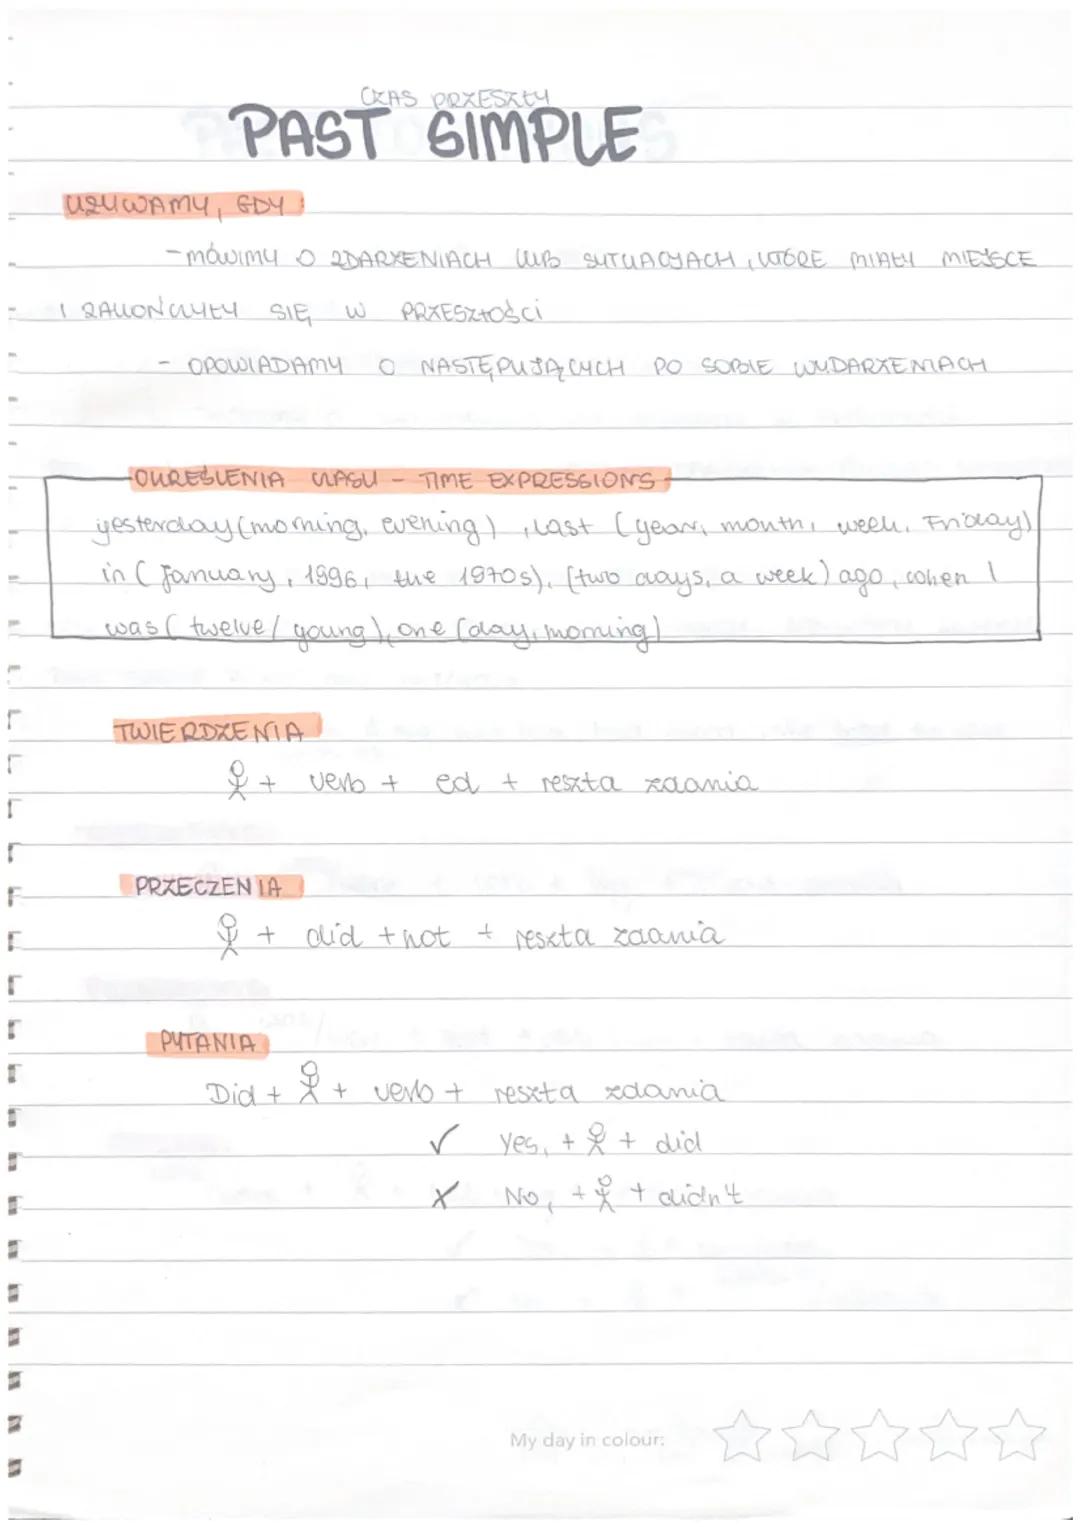 CZAS PRZESZŁY
PAST SIMPLE
UŻYWAMY, GDY:
- MÓWIMY O ZDARZENIACH LUB SYTUACJACH, KTÓRE MIAŁY MIEJSCE
I ZAKOŃCZYŁY SIĘ W PRZESZŁOŚCI
- OPOWIADAMY O NASTĘPUJĄCYCH PO SOBIE WYDARZENIACH
OKREŚLENIA CZASU - TIME EXPRESSIONS
yesterday (morning, evening), last (year, month, week, Friday)
in (January, 1996, the 1970s), (two days, a week) ago, when I
was (twelve/ young), one (day, morning)
TWIERDZENIA
+ verb + ed + reszta zdania
PRZECZENIA
+ did + not + reszta zdania
PYTANIA
Did + + verb + reszta zdania
✓ Yes, + + did
X No, + + didn't
My day in colour: